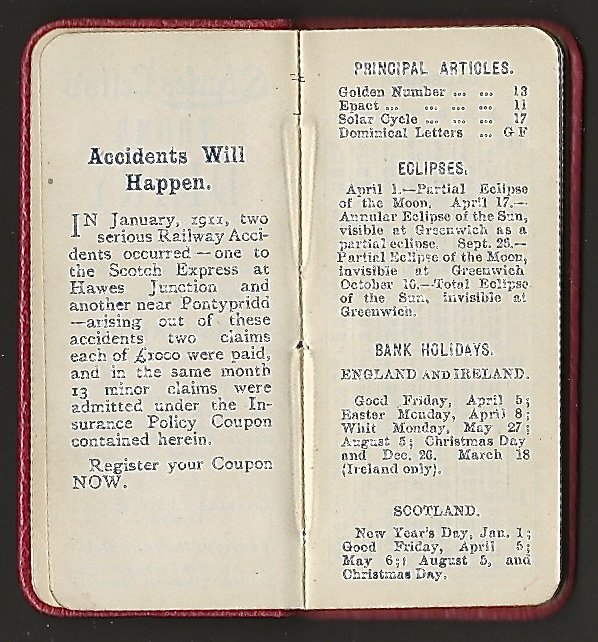 Accidents Will
Happen.
IN January, 1911, two
serious Railway Acci-
dents occurred — one to
the Scotch Express at
Hawes Junction and
another near Pontypridd
—arising out of these
accidents two claims
each of £1000 were paid,
and in the same month
13 minor claims were
admitted under the In-
surance Policy Coupon
contained herein.
Register your Coupon
NOW.
PRINCIPAL ARTICLES.
Golden Number ... ... 13
Epact ... ... ... ... 11
Solar Cycle ... ... ... 17
Dominical Letters ... G F
ECLIPSES.
April 1.—Partial Eclipse
of the Moon. April 17.—
Annular Eclipse of the Sun,
visible at Greenwich as a
partial eclipse. Sept. 26.—
Partial Eclipse of the Moon,
invisible at Greenwich
October 10.—Total Eclipse
of the Sun, invisible at
Greenwich.
BANK HOLIDAYS.
ENGLAND AND IRELAND.
Good Friday, April 5;
Easter Monday, April 8;
Whit Monday, May 27;
August 5; Christmas Day
and Dec. 26. March 18
(Ireland only).
SCOTLAND.
New Year's Day, Jan. 1;
Good Friday, April 5;
May 6; August 5, and
Christmas Day.